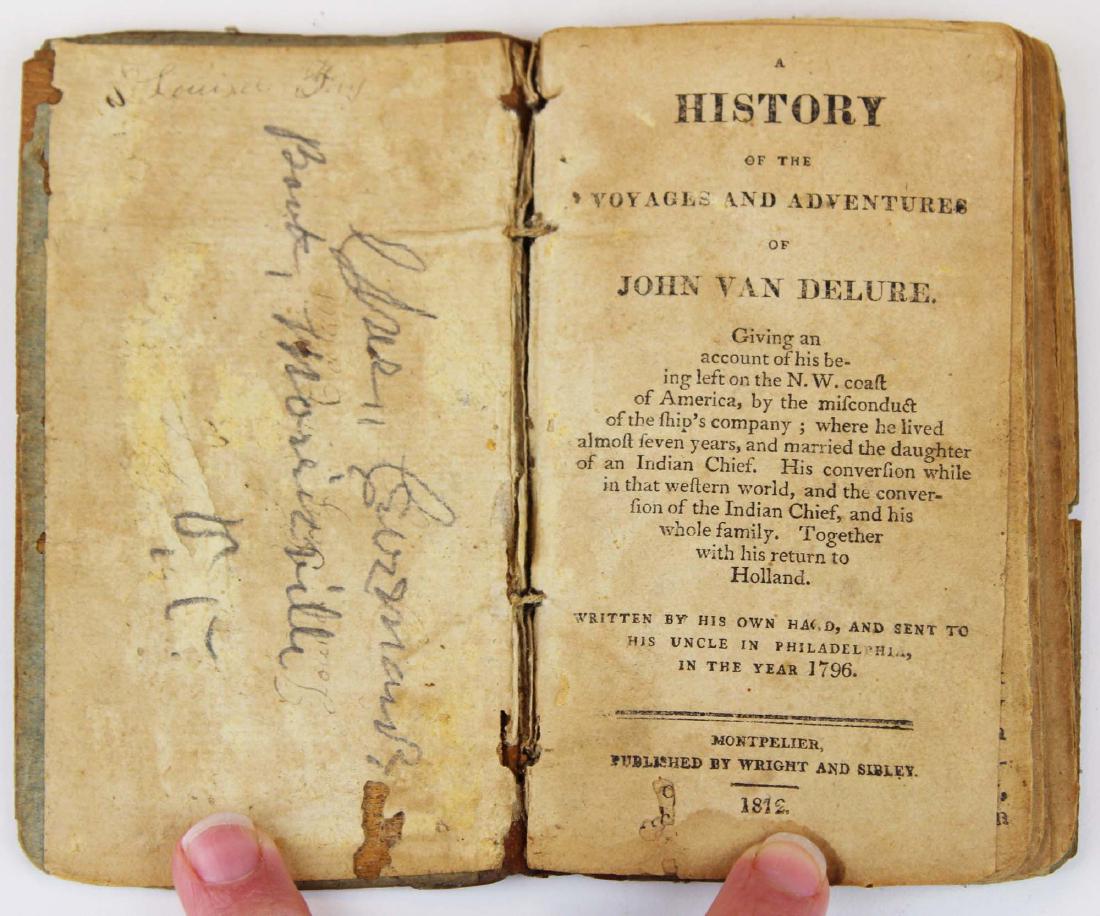 Louisa
Book, Morrisville
A
HISTORY
OF THE
VOYAGES AND ADVENTURES
OF
JOHN VAN DELURE.
Giving an
account of his be-
ing left on the N. W. coaſt
of America, by the miſconduct
of the ſhip's company ; where he lived
almoſt ſeven years, and married the daughter
of an Indian Chief. His converſion while
in that weſtern world, and the conver-
ſion of the Indian Chief, and his
whole family. Together
with his return to
Holland.
WRITTEN BY HIS OWN HAND, AND SENT TO
HIS UNCLE IN PHILADELPHIA,
IN THE YEAR 1796.
MONTPELIER,
PUBLISHED BY WRIGHT AND SIBLEY.
1812.